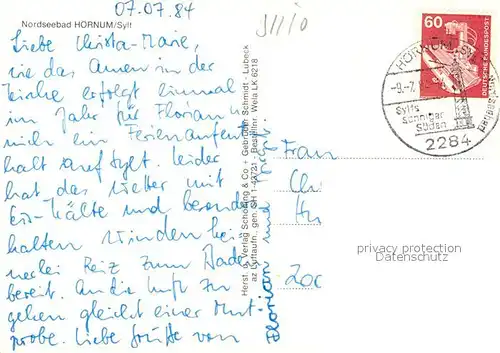 07.07.84
Nordseebad HÖRNUM/Sylt
Liebe Christa-Marie,
wie das Amen in der
Kirche erfolgt einmal
im Jahr für Florian u
mich ein Ferienaufent
halt auf Sylt. Leider
hat das Wetter mit
Eis-Kälte und
haften Winden kei
nerlei Reiz zum Baden
bereit. An die Luft zu
gehen gleicht einer Mut
probe. Liebe Grüße von
Florian und
Herst. u. Verlag Schöning & Co + Gebrüder Schmidt - Lübeck
Luftaufn., gen. SH 1-42/21 Bestellnr. Wela LK 6218
60
DEUTSCHE BUNDESPOST
HÖRNUM
Sylts
Sonniger
Süden
2284
Frau
privacy protection
akpool.de